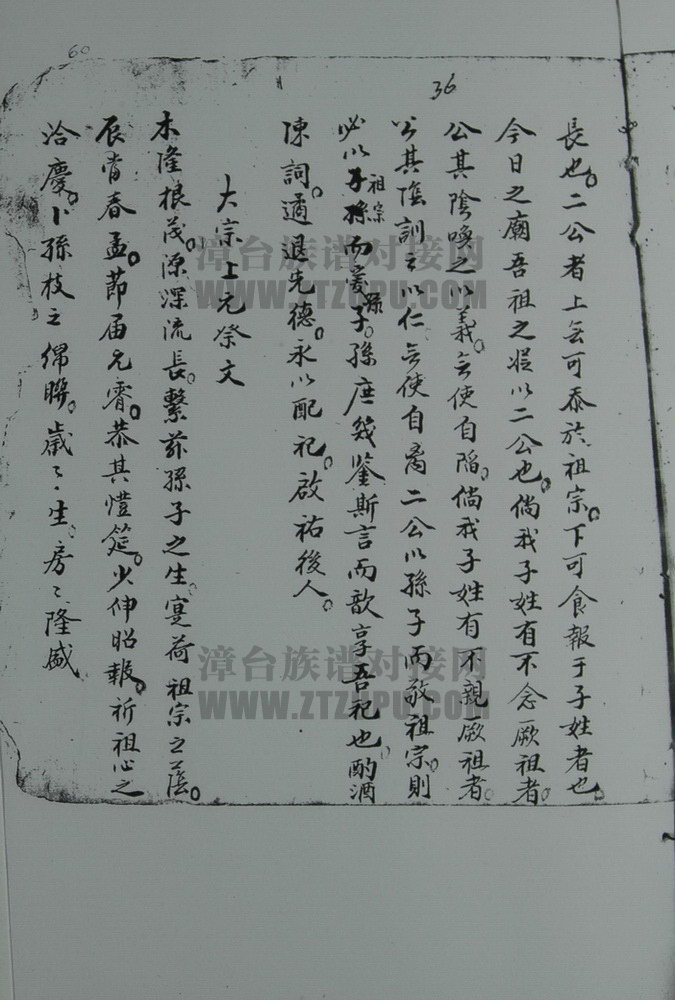 60
36
長也。二公者上無可忝於祖宗。下可食報于子姓者也。
今日之廟吾祖之叚以二公也。倘我子姓有不念厥祖者。
公其陰喚之以義。無使自陷。倘我子姓有不親厥祖者。
公其陰訓之以仁無使自离二公以孫子而敬祖宗。則
必以祖宗而愛子。孫庶幾鉴斯言而歆享吾祀也。酌酒
陳詞。遹退先德。永以配祀。啟祐後人。
大宗上元祭文
木隆根茂。源深流長。繫茲孫子之生。寔荷祖宗之蔭。
辰當春孟。節届元霄。恭其愷筵。少伸昭報。祈祖心之
洽慶。卜孫枝之綿聯。歲々生。房々隆盛
漳台族谱对接网
WWW.ZTZUPU.COM
漳台族谱对接网
WWW.ZTZUPU.COM